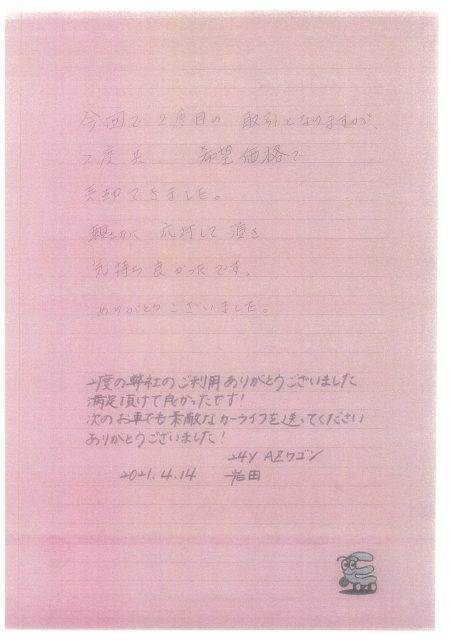 今回で2度目の 取引となりますが、
2度共 希望価格で
売却できました。
親切に 応対して 頂き
気持ち良かったです。
ありがとうございました。
2度の弊社のご利用ありがとうございました
満足頂けて良かったです!
次のお車でも素敵なカーライフを送ってください
ありがとうございました!
24Y AZワゴン
2021.4.14 岩田